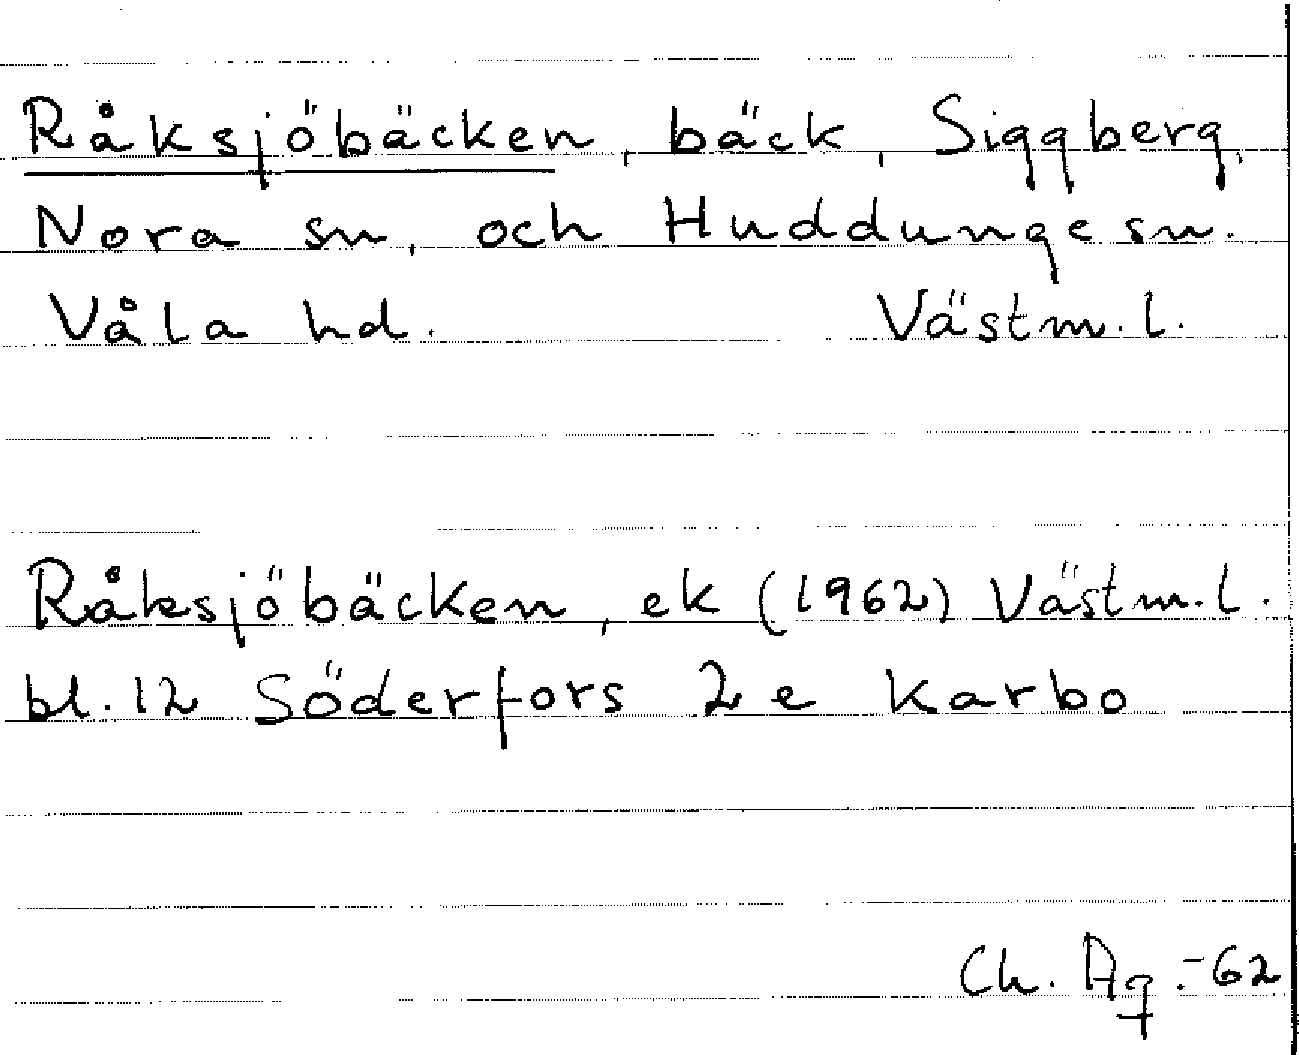 Råksjöbäcken, bäck, Siggberg,
Nora sn, och Huddunge sn.
Våla hd. Västm. l.
Råksjöbäcken, ek (1962) Västm. l.
bl. 12 Söderfors 2 e Karbo
Ch. Ag. -62